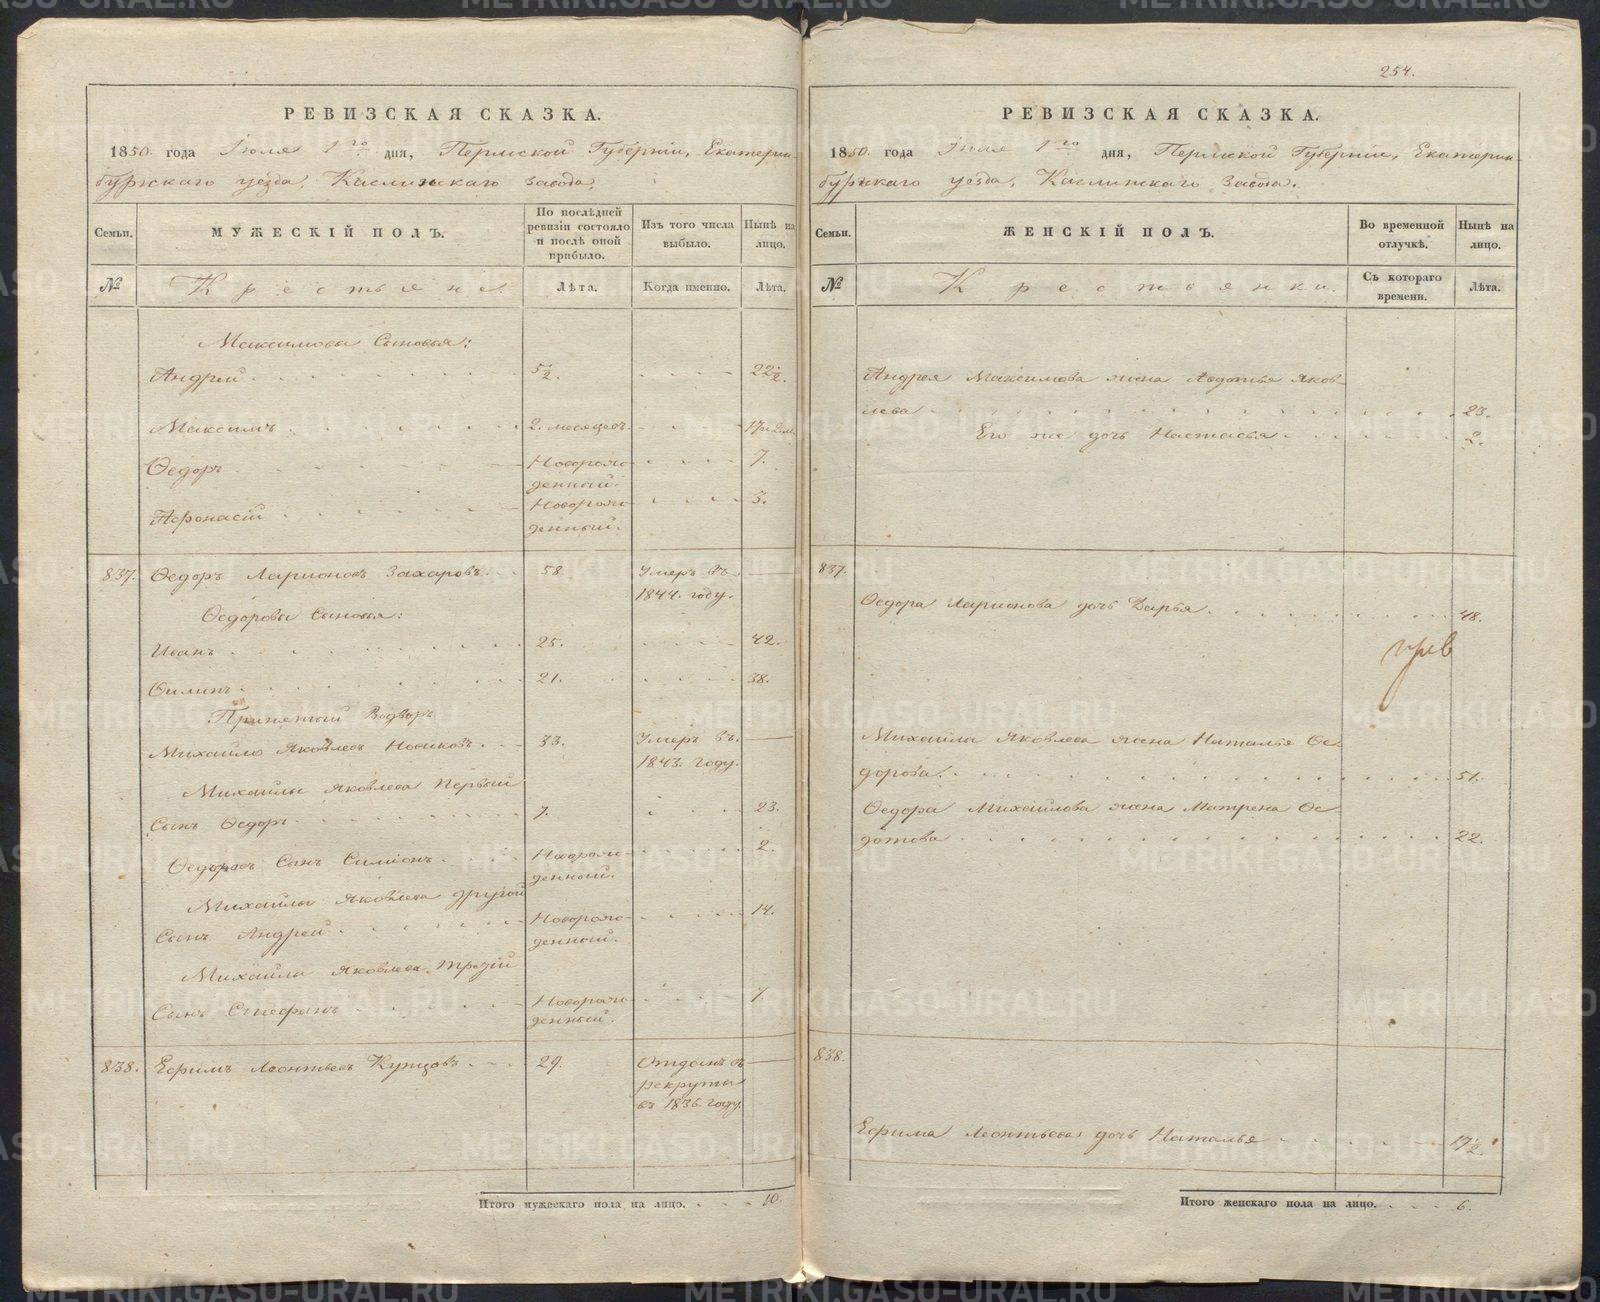 РЕВИЗСКАЯ СКАЗКА.
1850. года Іюля 1го дня, Пермской Губерніи, Екатерин-
бургскаго уезда, Каслинскаго завода.
Семьи.
МУЖЕСКІЙ ПОЛЪ.
По послѣдней ревизіи состояло и послѣ оной прибыло.
Изъ того числа выбыло.
Нынѣ на лицо.
№
Крестьяне.
Лѣта.
Когда именно.
Лѣта.
Максимовы Сыновья:
Андрей 5½. 22½.
Максимъ 2. месяцевъ. 17 и 2 м.
Ѳедоръ Новорож- 7.
денный.
Афонасій Новорож- 3.
денный.
837. Ѳедоръ Ларионовъ Захаровъ. 58 Умеръ въ
1844. году.
Ѳедоровы Сыновья:
Иванъ 25. 42.
Филипъ 21. 38.
Принетый Водворъ
Михайло Яковлевъ Новиковъ 33. Умеръ въ
1843. году.
Михайлы Яковлева первый
Сынъ Ѳедоръ 7. 23.
Ѳедоровъ Сынъ Симіонъ Новорож- 2.
денный.
Михайлы Яковлева другой
Сынъ Андрей Новорож- 14.
денный.
Михайлы Яковлева третій
Сынъ Стефанъ Новорож- 7
денный.
838. Ефимъ Леонтьевъ Купцовъ 29. Отданъ въ
рекруты
въ 1836 году.
Итого мужескаго пола на лицо. 10.
254.
РЕВИЗСКАЯ СКАЗКА.
1850. года Іюля 1го дня, Пермской Губерніи, Екатерин-
бургскаго уезда, Каслинскаго Завода.
Семьи.
ЖЕНСКІЙ ПОЛЪ.
Во временной отлучкѣ.
Нынѣ на лицо.
№
Крестьянки.
Съ котораго времени.
Лѣта.
Андрея Максимова жена Авдотья Яков-
лева 23.
Его же дочь Настасья 2.
837.
Ѳедора Ларионова дочь Дарья 48.
Михайлы Яковлева жена Наталья Ѳе-
дорова 51.
Ѳедора Михайлова жена Матрена Ѳе-
дотова 22.
838.
Ефима Леонтьева дочь Наталья 17½.
Итого женскаго пола на лицо. 6.
METRIKI.GASO-URAL.RU